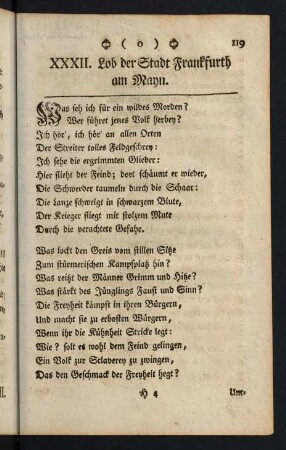 ( o ) 119
XXXII. Lob der Stadt Frankfurth
am Mayn.
Was seh ich für ein wildes Morden?
Wer führet jenes Volk herbey?
Ich hör', ich hör' an allen Orten
Der Streiter tolles Feldgeschrey:
Ich sehe die ergrimmten Glieder:
Hier flieht der Feind; dort schäumt er wieder,
Die Schwerder taumeln durch die Schaar:
Die Lanze schwelgt in schwarzem Blute,
Der Krieger fliegt mit stolzem Mute
Durch die verachtete Gefahr.
Was lockt den Greis vom stillen Sitze
Zum stürmerischen Kampfplatz hin?
Was reitzt der Männer Grimm und Hitze?
Was stärkt des Jünglings Faust und Sinn?
Die Freyheit kämpft in ihren Bürgern,
Und macht sie zu erbosten Würgern,
Wenn ihr die Kühnheit Stricke legt:
Wie? solt es wohl dem Feind gelingen,
Ein Volk zur Sclaverey zu zwingen,
Das den Geschmack der Freyheit hegt?
H 4 Um-